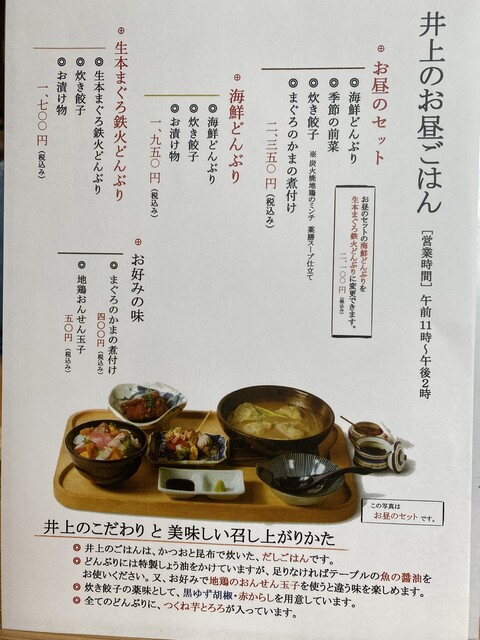 井上のお昼ごはん
［営業時間］午前11時～午後2時
⊕ お昼のセット
◎ 海鮮どんぶり
◎ 季節の前菜
◎ まぐろのかまの煮付け
◎ 炊き餃子 ※炭火焼地鶏のミンチ 薬膳スープ仕立て
二、三五〇円（税込み）
お昼のセットの海鮮どんぶりを
生本まぐろ鉄火どんぶりに変更できます。
二、一〇〇円（税込み）
⊕ 海鮮どんぶり
◎ 海鮮どんぶり
◎ 炊き餃子
◎ お漬け物
一、九五〇円（税込み）
⊕ 生本まぐろ鉄火どんぶり
◎ 生本まぐろ鉄火どんぶり
◎ 炊き餃子
◎ お漬け物
一、七〇〇円（税込み）
⊕ お好みの味
◎ まぐろのかまの煮付け
四〇〇円（税込み）
◎ 地鶏おんせん玉子
五〇円（税込み）
この写真は
お昼のセット です。
井上のこだわり と 美味しい召し上がりかた
◎ 井上のごはんは、かつおと昆布で炊いた、だしごはんです。
◎ どんぶりには特製しょう油をかけていますが、足りなければテーブルの魚の醤油を
お使いください。又、お好みで地鶏のおんせん玉子を使うと違う味を楽しめます。
◎ 炊き餃子の薬味として、黒ゆず胡椒・赤からしを用意しています。
◎ 全てのどんぶりに、つくね芋とろろが入っています。